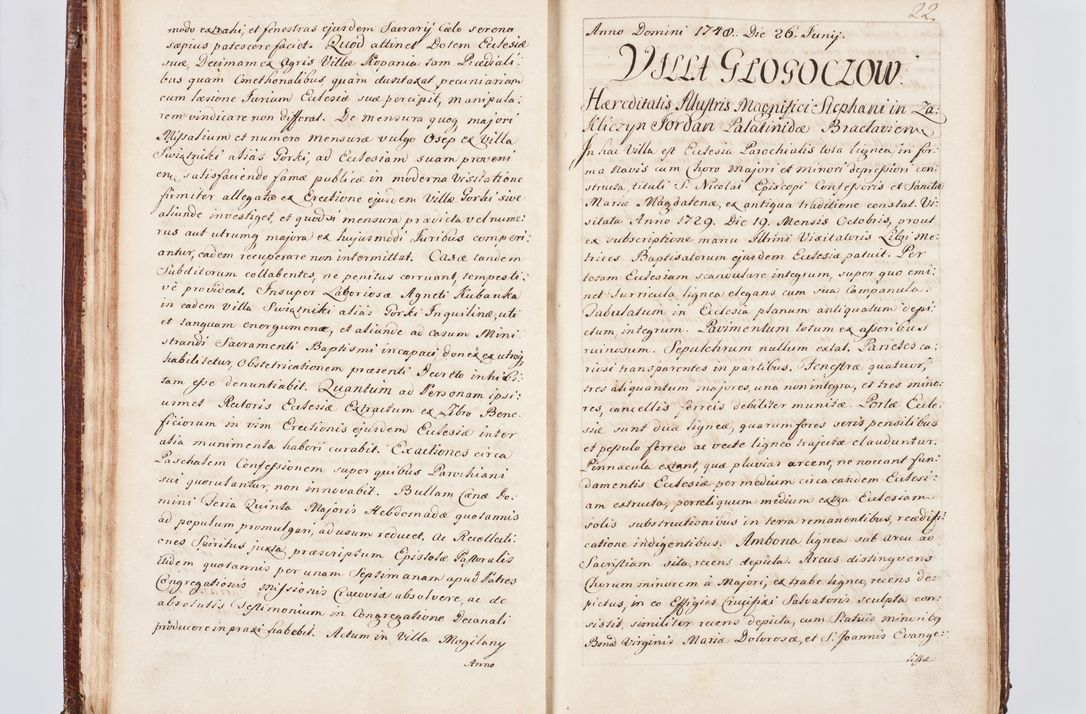 modo extrahi, et fenestras ejusdem Sacrarij Cælo sereno
sæpius patescere faciet. Quod attinet Dotem Ecclesiæ
suæ, Decimam ex Agris Villæ Kopania tam Prædiali:
bus quam Cmethonalibus quam duntaxat pecuniariam
cum læsione Jurium Ecclesiæ suæ percipit, manipula:
rem vindicare non differat. De mensura quoq majori
Missalium et numero mensuræ vulgo Osep ex Villa
Swiątniki aliàs Gorki, ad Ecclesiam suam proveni
en, satisfaciendo famæ publicæ in moderna Visitatione
firmiter allegatæ ex Erectione ejusdem Villæ Gorki sive
aliunde investiget, et quodsi mensura prædicta vel nume:
rus aut utrumq majora ex hujusmodi Juribus comperi:
antur, eadem recuperare non intermittat. Casæ tandem
Subditorum collabentes, ne penitus corruant, tempesti:
vè provideat. Insuper Laboriosæ Agneti Kubanka
in eadem Villa Swiątniki aliàs Gorki Inquilinæ, uti
et tanquam energumenæ, et aliunde ad casum Mini:
strandi Sacramenti Baptismi incapaci, donec ex utroq
habilitetur, Obstetricationem præsenti Decreto inhibi:
tam esse denuntiabit. Quantum ad Personam ipsi:
usmet Rectoris Ecclesiæ Extractum ex Libro Bene:
ficiorum in vim Erectionis ejusdem Ecclesiæ inter
alia munimenta haberi curabit. Exactiones circa
Paschalem Confessionem super quibus Parochiani
sui queruntur, non innovabit. Bullam Cænæ Do:
mini Feria Quinta Majoris Hebdomadæ quotannis
ad populum promulgari, ad usum reducet. Ac Recollecti:
ones Spiritus juxta præscriptum Epistolæ Pastoralis
itidem quotannis per unam Septimanam apud Patres
Congregationis Missionis Cracoviæ absolvere, ac de
absolutis Testimonium in Congregatione Decanali
producere in praxi habebit. Actum in Villa Mogilany
Anno
22.
Anno Domini 1748. Die 26. Junij.
VILLA GŁOGOCZOW.
Hæreditatis Illustris Magnifici Stephani in Za:
kliczyn Jordan Palatinidæ Braclavien
In hac Villa est Ecclesia Parochialis tota lignea, in for:
ma Navis cum Choro majori et minori depressiori con:
structa, tituli S. Nicolai Episcopi Confessoris et Sanctæ
Mariæ Magdalenæ, ex antiqua traditione constat. Vi:
sitata Anno 1729. Die 19. Mensis Octobris, prout
ex subscriptione manu Illtrmi Visitatoris Libri Me:
trices Baptisatorum ejusdem Ecclesiæ patuit. Per
totam Ecclesiam scandulare integrum, super quo emi:
net Turricula lignea elegans cum sua Campanula.
Tabulatum in Ecclesia planum antiquatum depi:
ctum integrum. Pavimentum totum ex asseribus
ruinosum. Sepulchrum nullum extat. Parietes ca:
riosi transparentes in partibus. Fenestræ quatuor,
tres aliquantum majores, una non integra, et tres mino:
res, cancellis ferreis debiliter munitæ. Portæ Eccle:
siæ sunt duæ ligneæ, quarum fores seris pensilibus
et pessulo ferreo ac vecte ligneo trajectæ clauduntur.
Pinnacula extant, quæ pluvias arcent, ne noceant fun:
damentis Ecclesiæ per medium circa eandem Ecclesi:
am extructa, per reliquum medium extra Ecclesiam
solis substructionibus in terra remanentibus, reædifi:
catione indigentibus. Ambona lignea sub arcu ad
Sacristiam sita, recens depicta. Arcus distinguens
Chorum minorem à Majori, ex trabe ligneo, recens de:
pictus, in eo Effigies Crucifixi Salvatoris sculpta con:
sistit, similiter recens depicta, cum Statuis minoribq
Bmæ Virginis Mariæ Dolorosæ, et S. Joannis Evange:
listæ